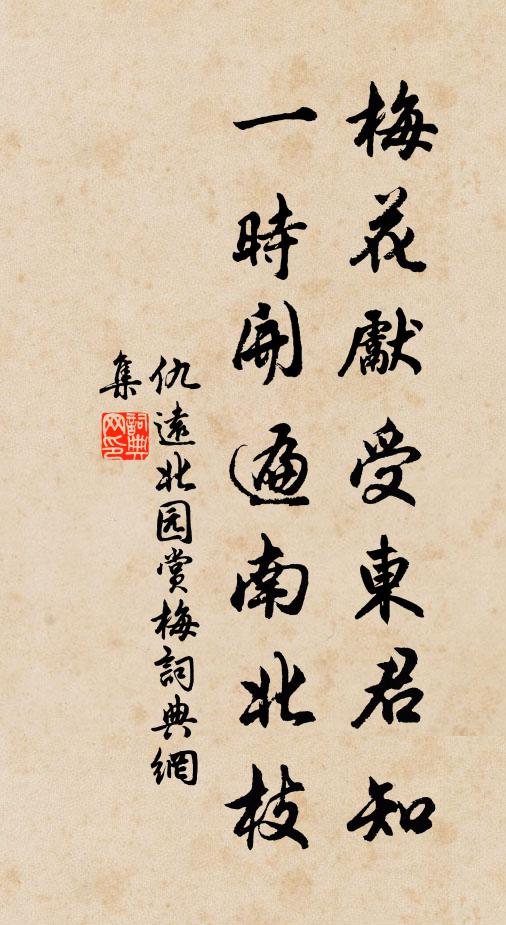 梅花獻受東君知
一時開遍南北枝
仇遠北园赏梅詞典網
集
詞典网印